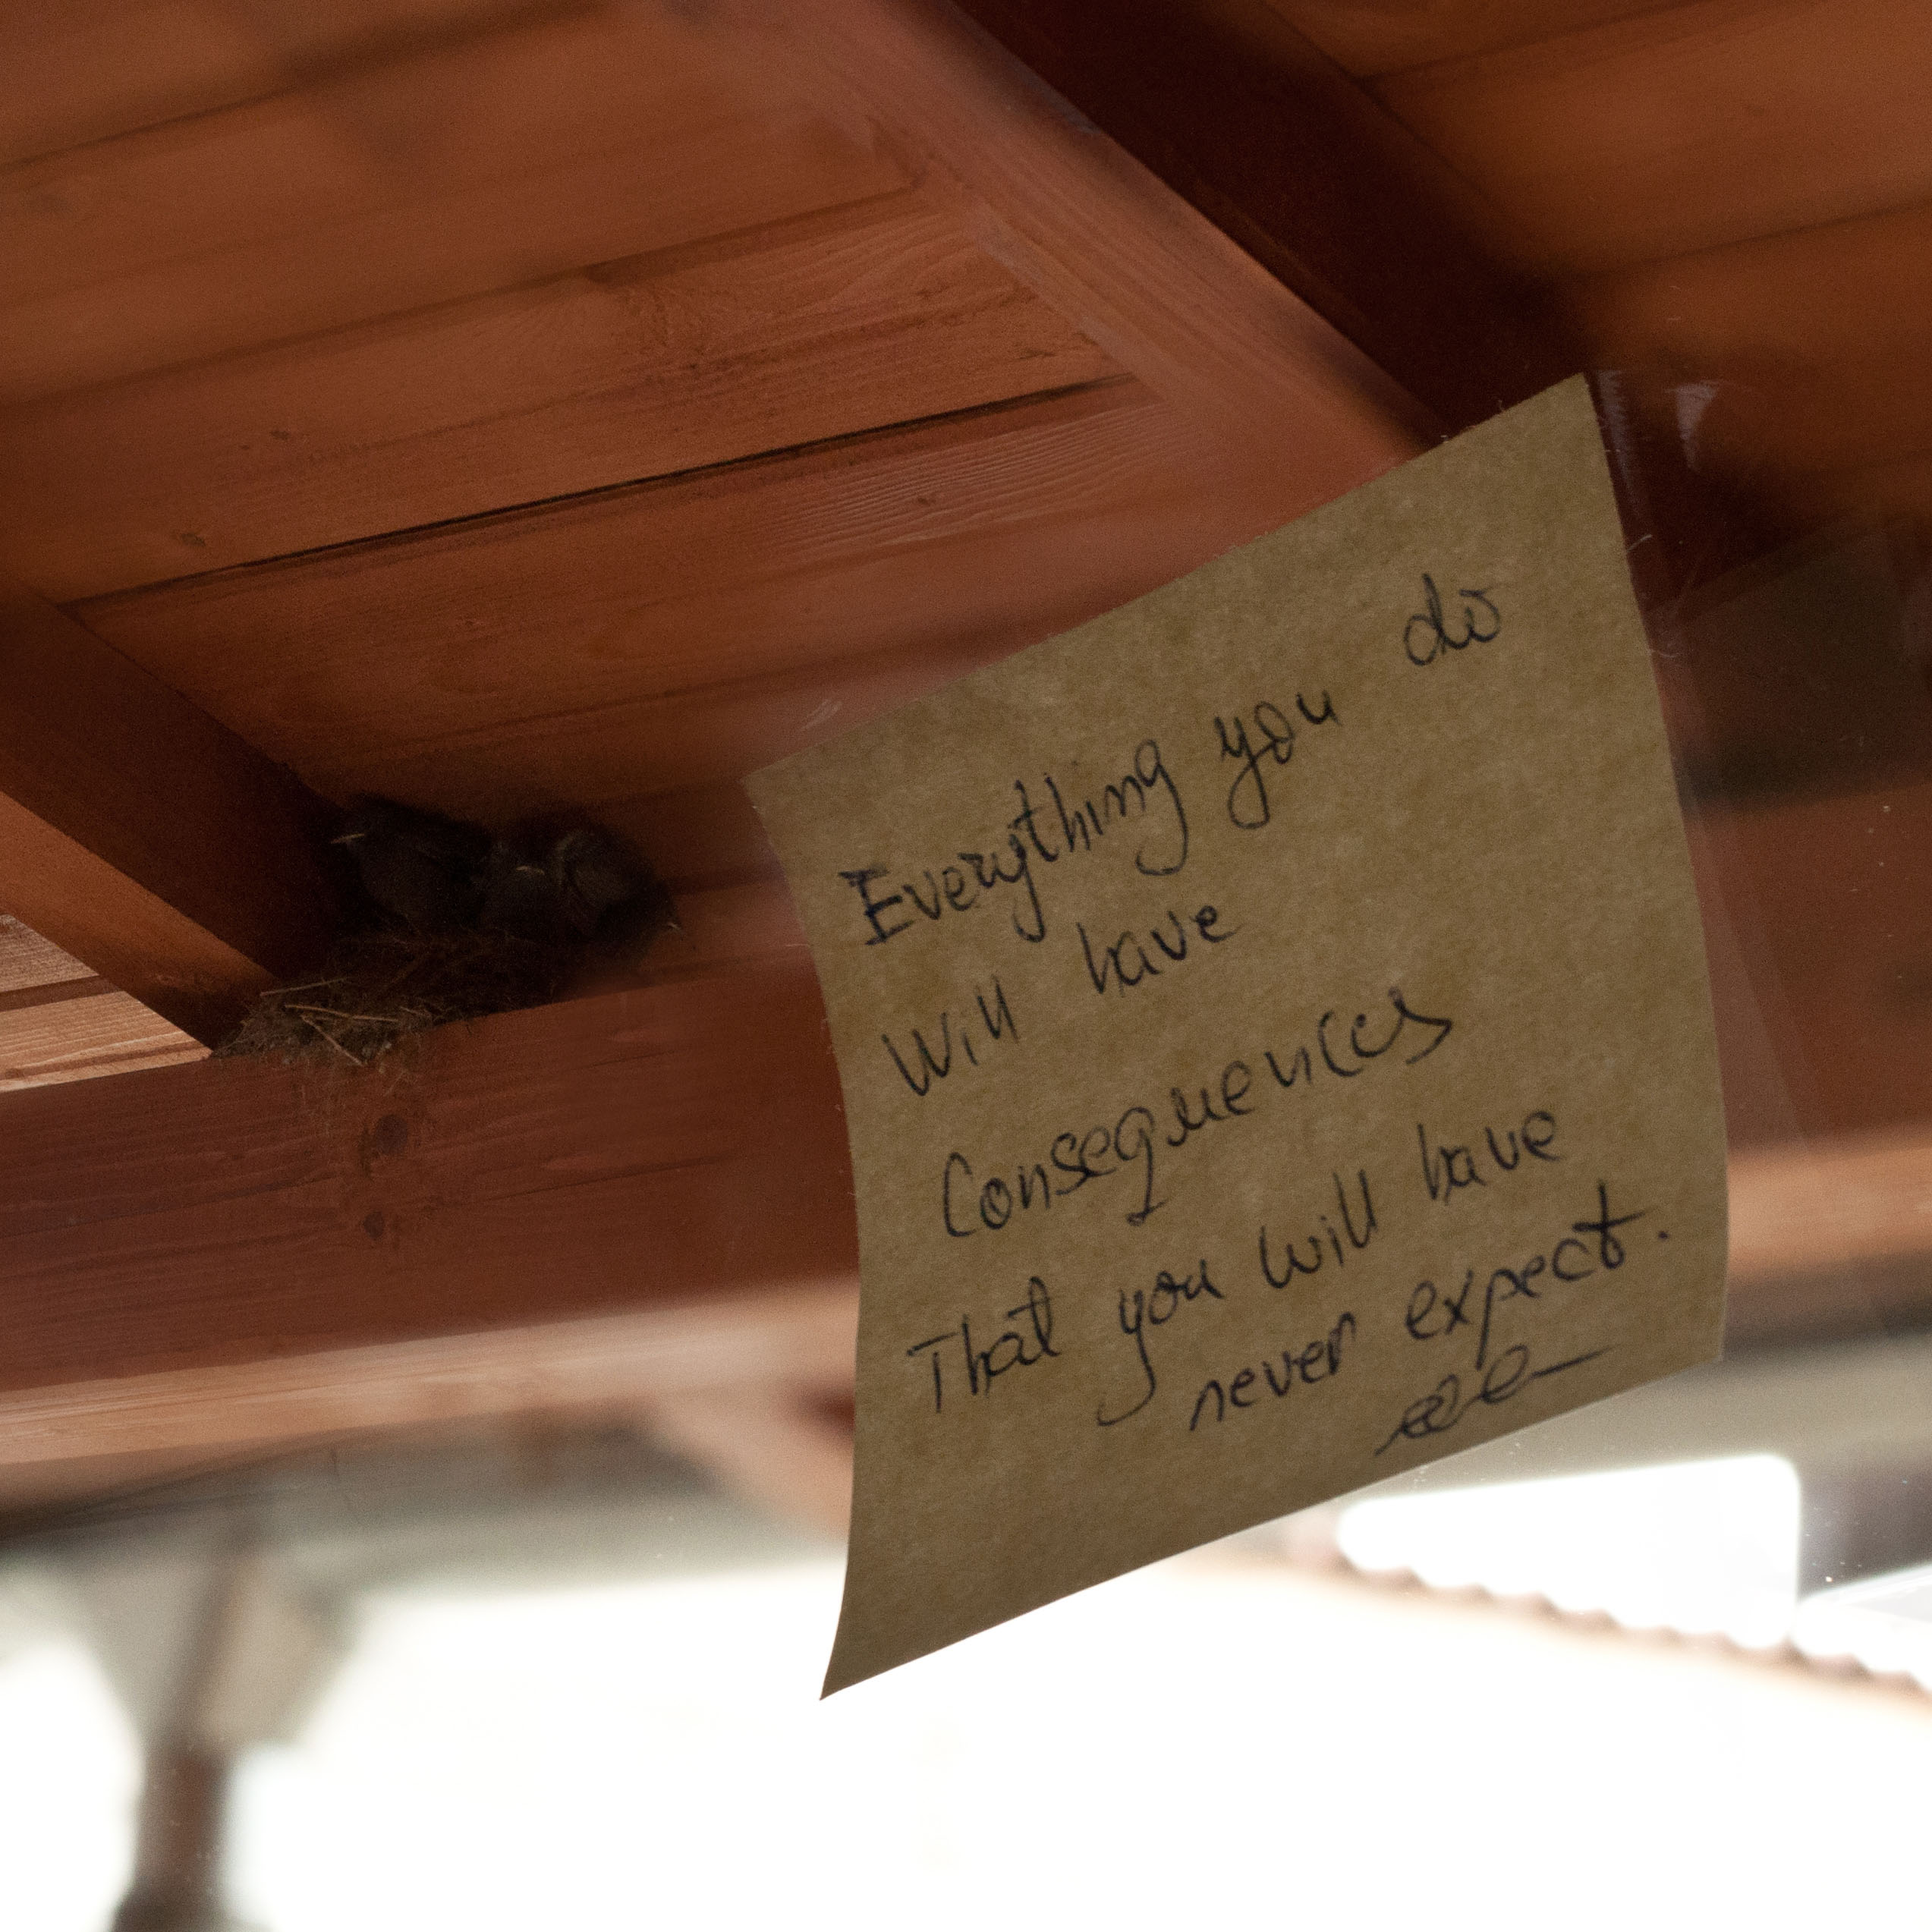 Everything you do
Will have
Consequences
That you will have
never expect.